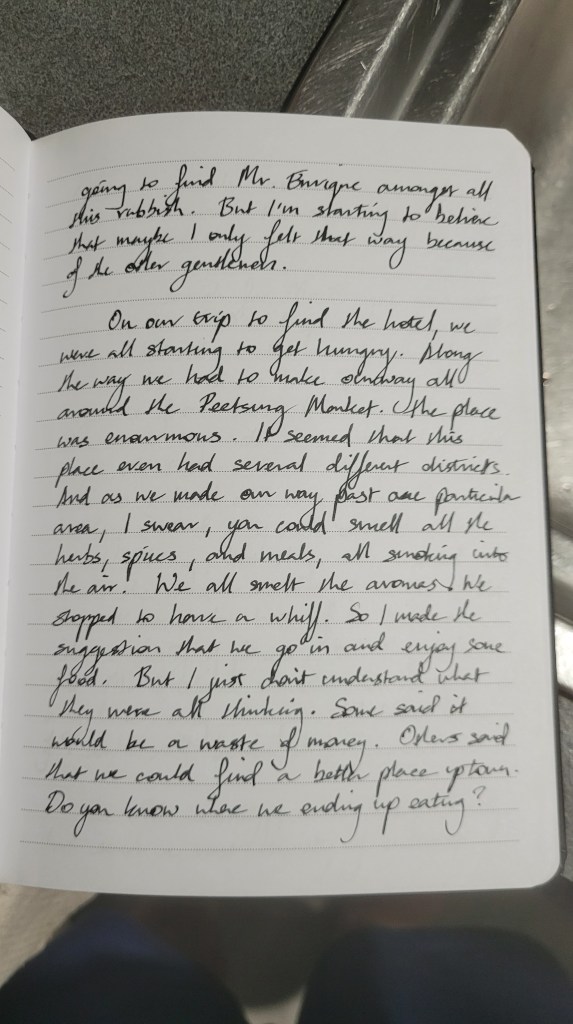 going to find Mr. Enrique amongst all
this rubbish. But I'm starting to believe
that maybe I only felt that way because
of the other gentlemen.
On our trip to find the hotel, we
were all starting to get hungry. Along
the way we had to make our way all
around the Peetsung Market. The place
was enormous. It seemed that this
place even had several different districts.
And as we made our way past one particular
area, I swear, you could smell all the
herbs, spices, and meals, all smoking into
the air. We all smelt the aromas. We
stopped to have a whiff. So I made the
suggestion that we go in and enjoy some
food. But I just don't understand what
they were all thinking. Some said it
would be a waste of money. Others said
that we could find a better place uptown.
Do you know where we ending up eating?